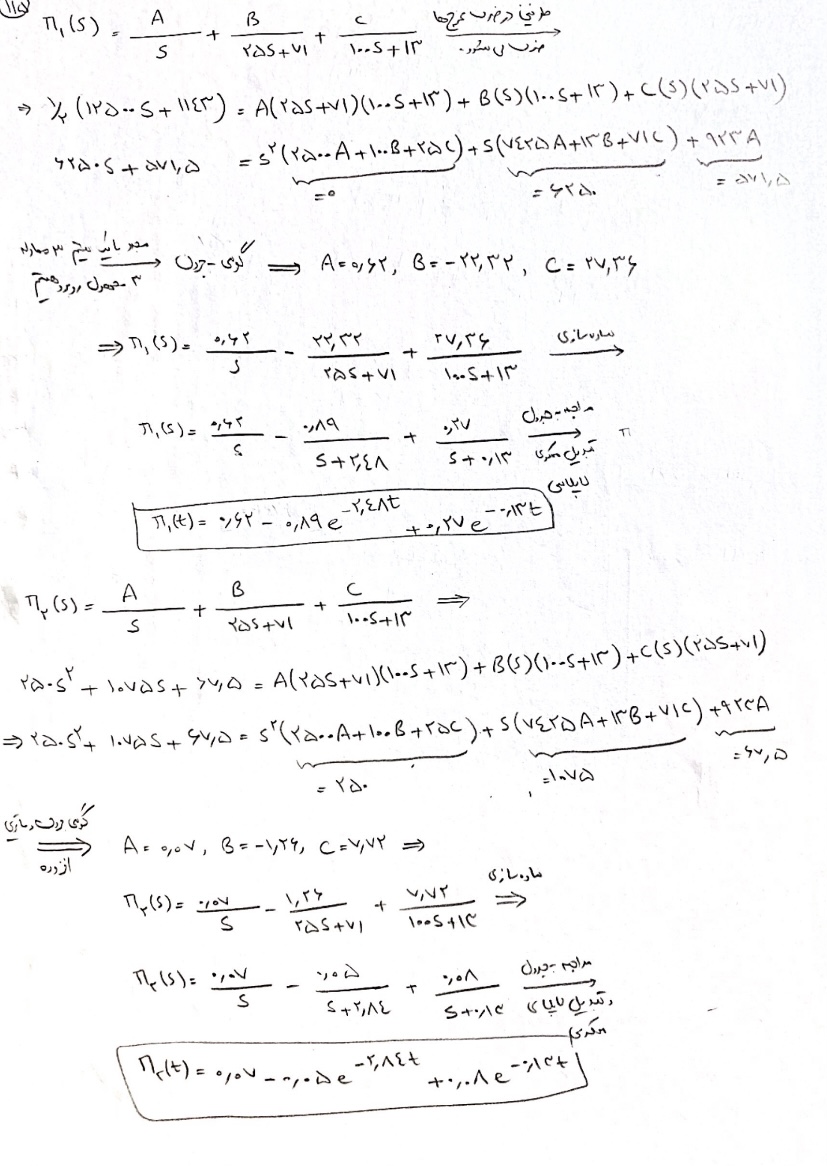 ۱۱۵
π₁(s) = A/s + B/(۲۵s+۷۱) + C/(۱۰۰s+۱۳) طرفین در ضرب مخرج‌ها ضرب می‌شود →
⇒ ½ (۱۲۵۰۰s + ۱۱۴۳) = A(۲۵s+۷۱)(۱۰۰s+۱۳) + B(s)(۱۰۰s+۱۳) + C(s)(۲۵s+۷۱)
۶۲۵۰s + ۵۷۱,۵ = s²(۲۵۰۰A+۱۰۰B+۲۵C) + s(۷۴۲۵A+۱۳B+۷۱C) + ۹۲۳A
=۰ =۶۲۵۰ =۵۷۱,۵
۳ معادله ۳ مجهول → گوس-جردن ⇒ A=۰,۶۲, B=-۲۲,۳۲, C=۲۷,۳۶
⇒ π₁(s) = ۰,۶۲/s - ۲۲,۳۲/(۲۵s+۷۱) + ۲۷,۳۶/(۱۰۰s+۱۳) ساده‌سازی →
π₁(s) = ۰,۶۲/s - ۰,۸۹/(s+۲,۴۸) + ۰,۲۷/(s+۰,۱۳) جدول تبدیل لاپلاس → π
π₁(t) = ۰,۶۲ - ۰,۸۹e^(-۲,۴۸t) + ۰,۲۷e^(-۰,۱۳t)
π₂(s) = A/s + B/(۲۵s+۷۱) + C/(۱۰۰s+۱۳) ⇒
۲۵۰s² + ۱۰۷۵s + ۶۷,۵ = A(۲۵s+۷۱)(۱۰۰s+۱۳) + B(s)(۱۰۰s+۱۳) + C(s)(۲۵s+۷۱)
⇒ ۲۵۰s² + ۱۰۷۵s + ۶۷,۵ = s²(۲۵۰۰A+۱۰۰B+۲۵C) + s(۷۴۲۵A+۱۳B+۷۱C) + ۹۲۳A
=۲۵۰ =۱۰۷۵ =۶۷,۵
⇒ A=۰,۰۷, B=-۱,۲۶, C=۷,۷۲ ⇒
π₂(s) = ۰,۰۷/s - ۱,۲۶/(۲۵s+۷۱) + ۷,۷۲/(۱۰۰s+۱۳) ساده‌سازی ⇒
π₂(s) = ۰,۰۷/s - ۰,۰۵/(s+۲,۸۴) + ۰,۰۸/(s+۰,۱۳) جدول تبدیل لاپلاس →
π₂(t) = ۰,۰۷ - ۰,۰۵e^(-۲,۸۴t) + ۰,۰۸e^(-۰,۱۳t)